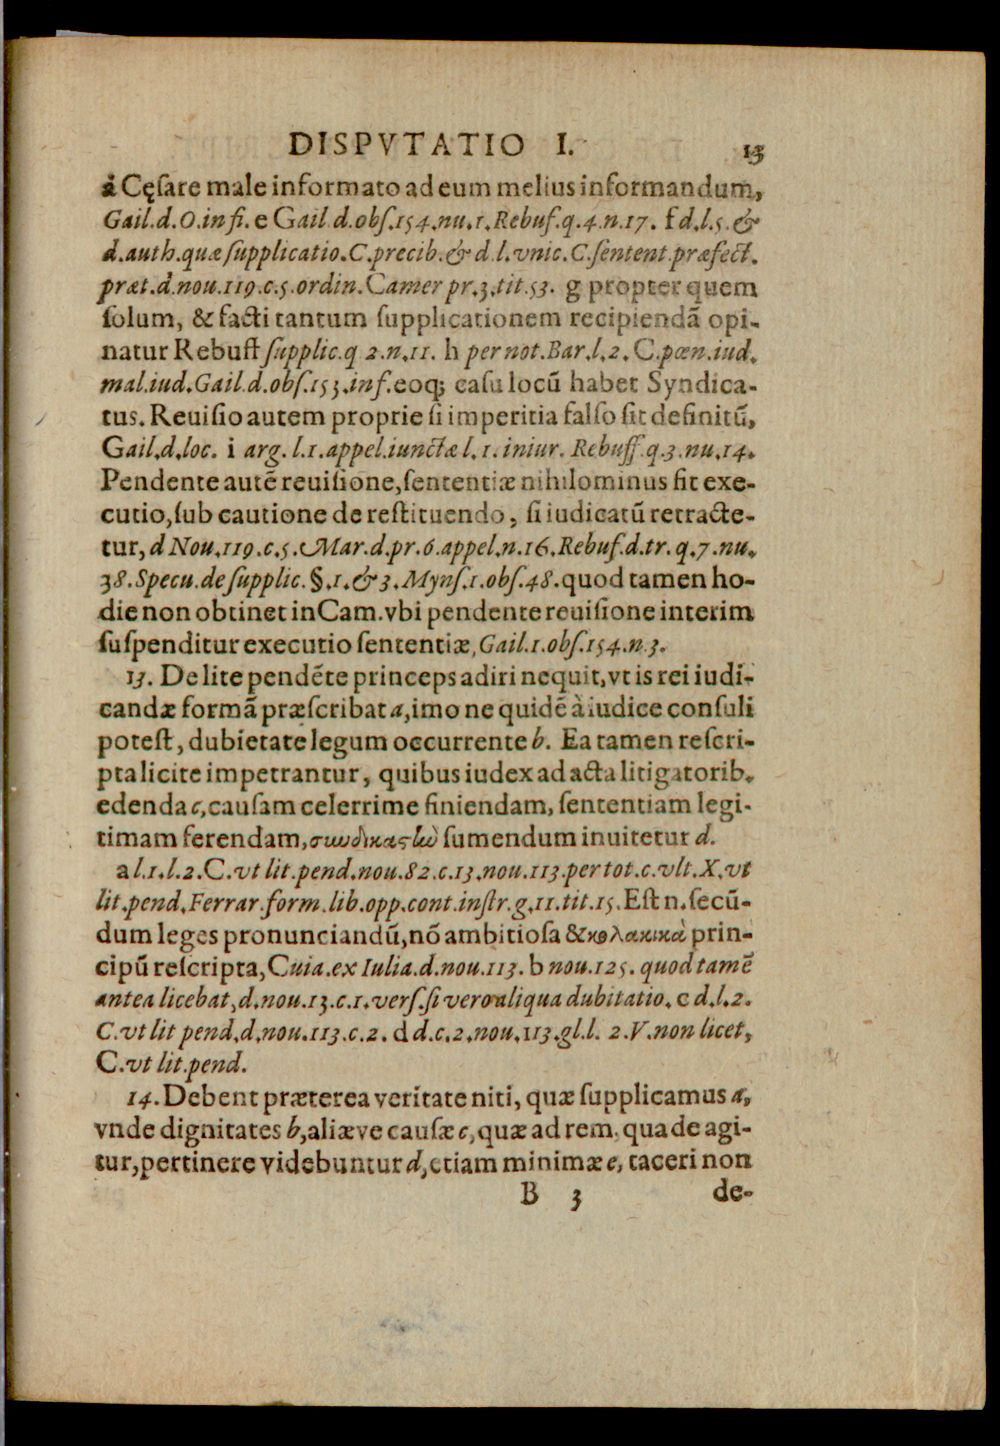 DISPVTATIO I. 13
à Cęſare male informato ad eum melius informandum,
Gail.d.O.in fi. e Gail d.obſ.154.nu.1.Rebuf.q.4.n.17. f d.l.5.&
d.auth.quæ ſupplicatio.C.precib.& d l.vnic.C.ſentent.præfect.
præt.d.nou.119.c.5.ordin.Camer pr.3.tit.53. g propter quem
ſolum, & facti tantum ſupplicationem recipiendã opi-
natur Rebuff ſupplic.q 2.n.11. h per not.Bar.l.2.C.pœn.iud.
mal.iud.Gail.d.obſ.153.inf.eoq; caſu locũ habet Syndica-
tus. Reuiſio autem proprie ſi imperitia falſo ſit definitũ,
Gail.d.loc. i arg. l.1.appel.iunctæ l.1.iniur. Rebuff.q.3.nu.14.
Pendente autẽ reuiſione,ſententiæ nihilominus fit exe-
cutio,ſub cautione de reſtituendo, ſi iudicatũ retracte-
tur, d Nou.119.c.5.Mar.d.pr.6.appel.n.16.Rebuf.d.tr.q.7.nu.
38.Specu.de ſupplic.§.1.& 3.Mynſ.1.obſ.48.quod tamen ho-
die non obtinet in Cam.vbi pendente reuiſione interim
ſuſpenditur executio ſententiæ,Gail.1.obſ.154.n.3.
13. De lite pendẽte princeps adiri nequit,vt is rei iudi-
candæ formã præſcribat a,imo ne quidẽ à iudice conſuli
poteſt, dubietate legum occurrente b. Ea tamen reſcri-
pta licite impetrantur, quibus iudex ad acta litigatorib.
edenda c,cauſam celerrime finiendam, ſententiam legi-
timam ferendam, συνδικαστὼ ſumendum inuitetur d.
a l.1.l.2.C.vt lit.pend.nou.82.c.13.nou.113.per tot.c.vlt.X.vt
lit.pend.Ferrar.form.lib.opp.cont.inſtr.g.11.tit.15.Eſt n.ſecũ-
dum leges pronunciandũ,nõ ambitioſa & κολακικὰ prin-
cipũ reſcripta,Cuia.ex Iulia.d.nou.113. b nou.125. quod tamẽ
antea licebat,d.nou.13.c.1.verſ.ſi vero aliqua dubitatio. c d.l.2.
C.vt lit pend.d.nou.113.c.2. d d.c.2.nou.113.gl.l. 2.V.non licet,
C.vt lit.pend.
14. Debent præterea veritate niti, quæ ſupplicamus a,
vnde dignitates b,aliæve cauſæ c,quæ ad rem, qua de agi-
tur,pertinere videbuntur d,etiam minimæ e, taceri non
B 3 de-